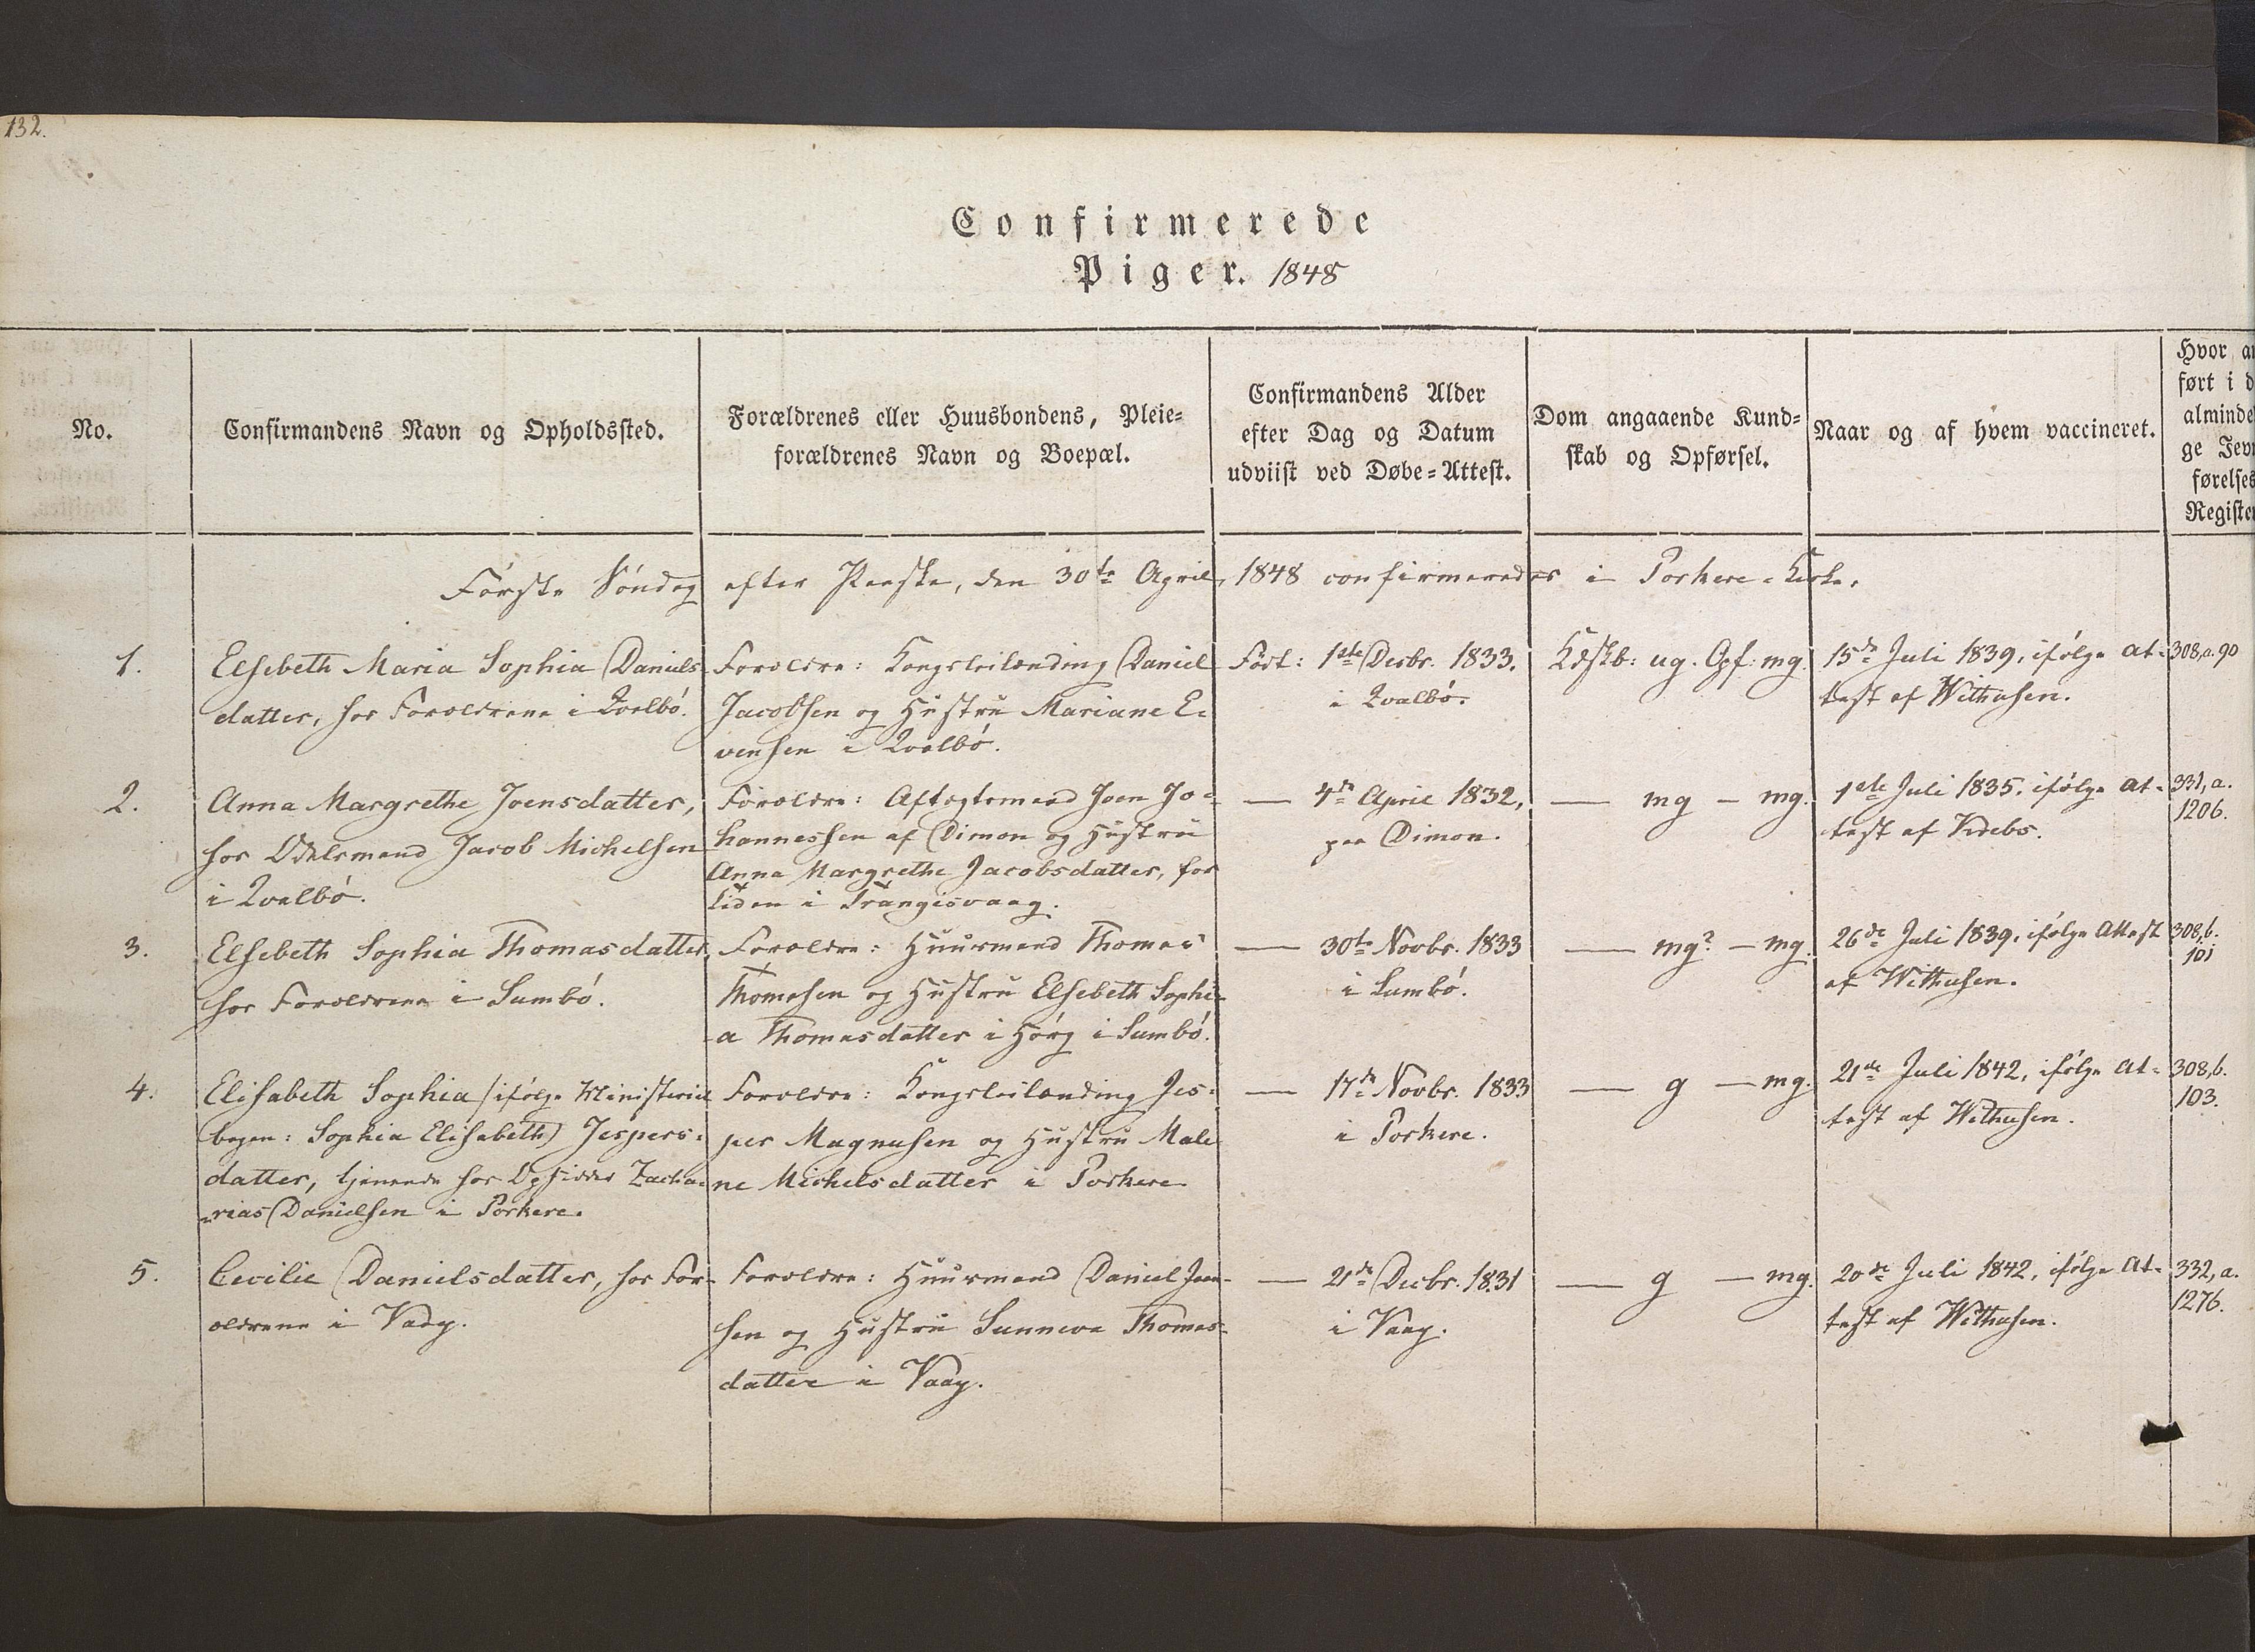 132.
Confirmerede
Piger. 1848
No.
Confirmandens Navn og Opholdssted.
Forældrenes eller Huusbondens, Pleie=
forældrenes Navn og Boepæl.
Confirmandens Alder
efter Dag og Datum
udviist ved Døbe=Attest.
Dom angaaende Kund=
skab og Opførsel.
Naar og af hvem vaccineret.
Hvor an
ført i d
alminde
ge Jevn
førelses
Register
Første Søndag efter Paaske, den 30te April, 1848 confirmeredes i Porkere=Kirke.
1.
Elsebeth Maria Sophia Daniels
datter, hos Forældrene i Qvalbø.
Forældre: Kongsleilænding Daniel
Jacobsen og Hustru Mariane E=
vensen i Qvalbø.
Født: 1ste Decbr. 1833.
i Qvalbø.
Kdskb: ug. Opf: mg.
15de Juli 1839, ifølge At=
test af Withusen.
308,a. 90
2.
Anna Margrethe Joensdatter,
hos Odelsmand Jacob Michelsen
i Qvalbø.
Forældre: Aftægtsmand Joen Jo=
hannessen af Dimon og Hustru
Anna Margrethe Jacobsdatter, for
Tiden i Trangisvaag.
— 4de April 1832,
paa Dimon.
— mg — mg.
1ste Juli 1835. ifølge At=
test af Videbs.
331, a.
1206.
3.
Elsebeth Sophia Thomasdatter,
hos Forældrene i Sumbø.
Forældre: Huusmand Thomas
Thomsen og Hustru Elsebeth Sophi=
a Thomasdatter i Hørg i Sumbø.
— 30te Novbr. 1833
i Sumbø.
— mg? — mg.
26de Juli 1839, ifølge Attest
af Withusen.
308,b.
101
4.
Elisabeth Sophia (ifølge Ministerial
bogen: Sophia Elisabeth) Jespers=
datter, tjenende hos Opsidder Zacha=
rias Danielsen i Porkere.
Forældre: Kongsleilænding Jes=
per Magnusen og Hustru Male
ne Michelsdatter i Porkere
— 17de Novbr. 1833
i Porkere.
— g — mg.
21de Juli 1842, ifølge At=
test af Withusen.
308,b.
103.
5.
Cecilie Danielsdatter, hos For=
ældrene i Vaag.
Forældre: Huusmand Daniel Joen=
sen og Hustru Sunneva Thomas=
datter i Vaag.
— 21de Decbr. 1831
i Vaag.
— g — mg.
20de Juli 1842, ifølge At=
test af Withusen.
332, a.
1276.